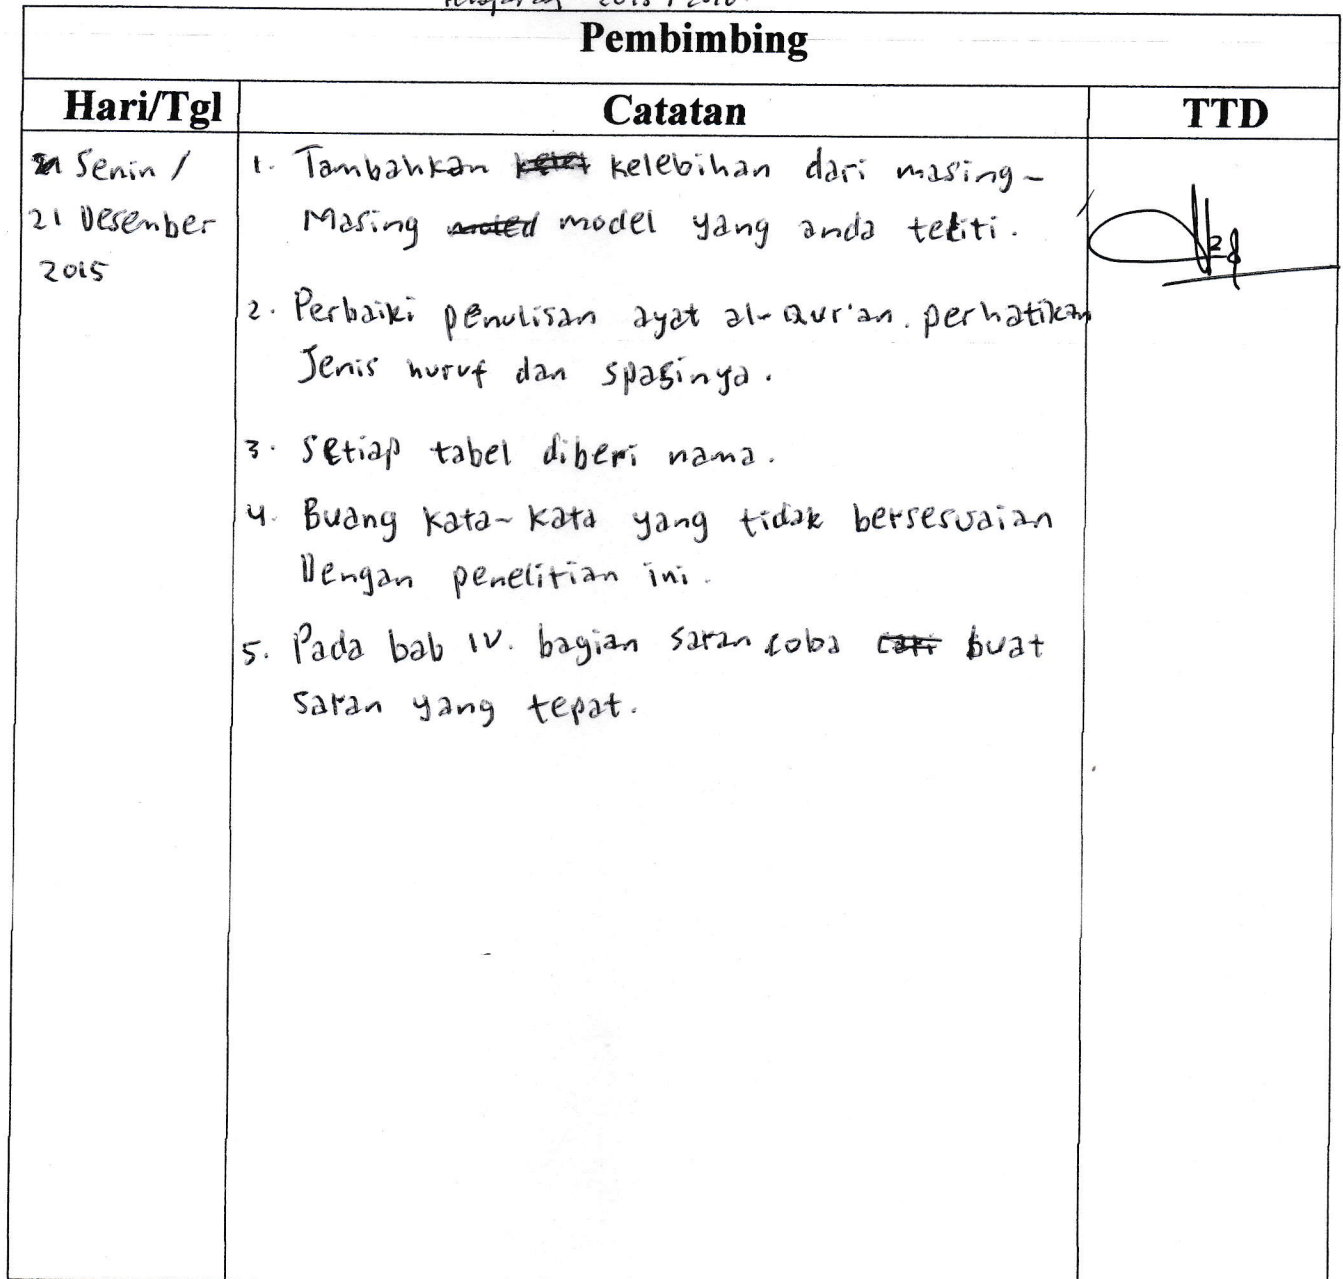 Pembimbing
Hari/Tgl Catatan TTD
Senin /
21 Desember
2015
1. Tambahkan kelebihan dari masing-
Masing model yang anda teliti.
2. Perbaiki penulisan ayat al-Qur'an. perhatikan
Jenis huruf dan spasinya.
3. Setiap tabel diberi nama.
4. Buang kata-kata yang tidak bersesuaian
Dengan penelitian ini.
5. Pada bab IV. bagian saran coba buat
saran yang tepat.